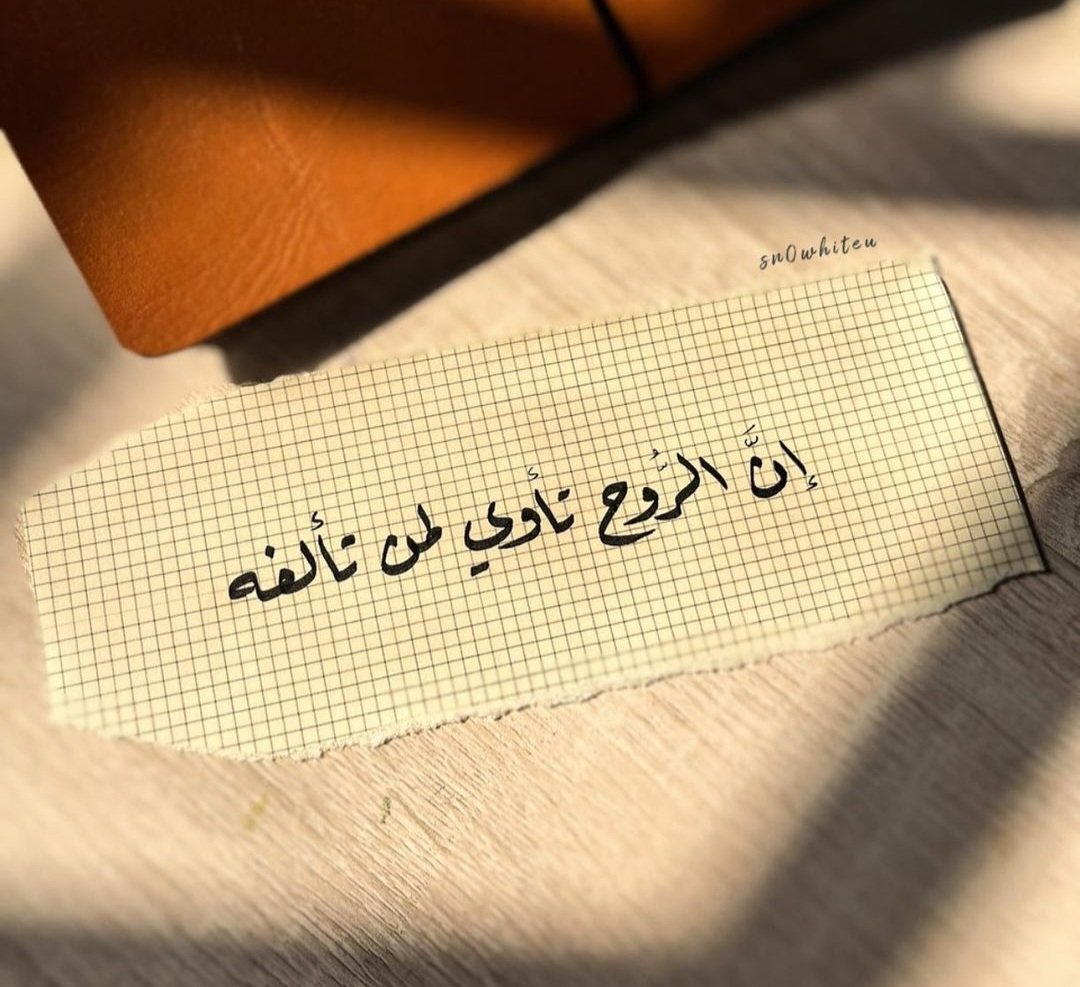 sn0whiteu
إنَّ الرُّوح تأوي لمن تألفه